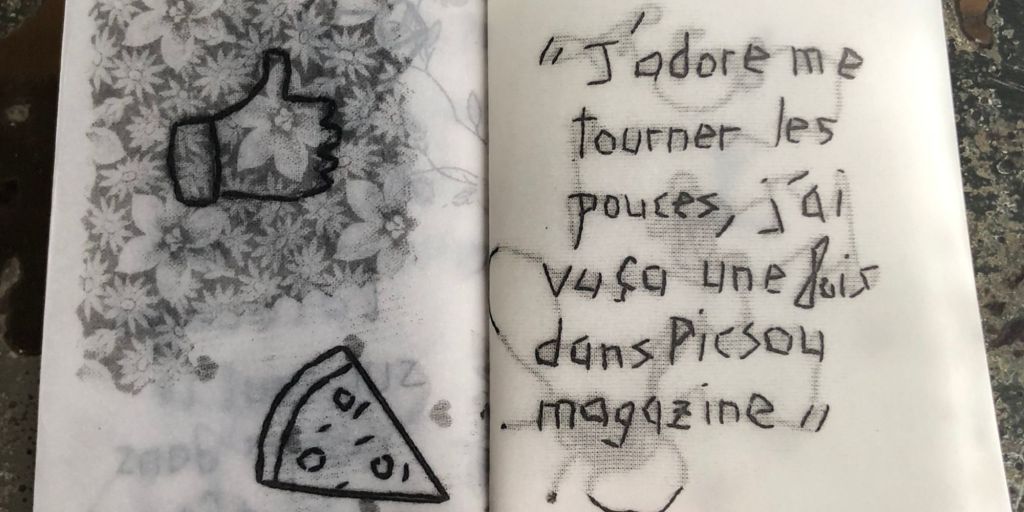 "J'adore me
tourner les
pouces, j'ai
vu ça une fois
dans Picsou
magazine"